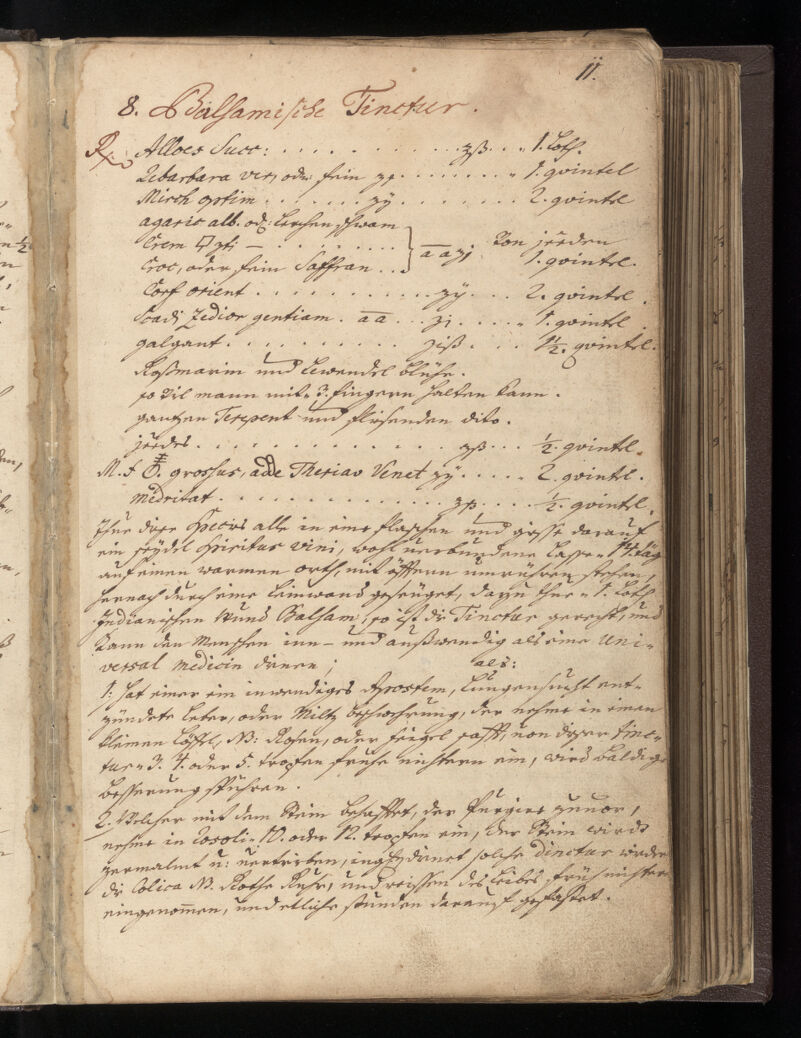 11.
8. Balsamische Tinctur.
Rx Alloes Succ: . . . ʒß . . 1. Loth.
Rebarbara ver, oder fein ʒj . . . 1. quintel
Mirch optim . . . ʒij . . . 2. quintel
agaric alb. od: Lerchenschwam
Crem ti — . . . aa ʒj Von jeeden
Croc, oder fein Saffran . . . 1. quintel.
orient . . . ʒij . . . 2. quintel.
Zedior gentiam. aa . . . ʒi . . . 1. quintel
galgant . . . ʒiß . . . 1½. quintel.
Roßmarin und Lewendel blühe.
so vil mann mit 3. fingern halten kann.
gantzen und dito.
jeedes . . . ʒß . . . ½. quintel.
M. f. grossus, adde Theriac Venet ʒij . . . 2. quintel.
Medritat . . . ʒß . . . ½. quintel.
Thue diese Species alle in eine flaschen und giesse darauf
ein seydel Spiritus vini, wohl verbundener lassen 14. täg
auf einen warmen orth, mit öfftern umrühren stehen,
hernach durch eine leinwand geseuget, darzu thue 1. Loth
Indianischen Wund Balsam, so ist die Tinctur gerecht, und
kann den Menschen inn- und außwendig als eine Uni-
versal Medicin dienen; als:
1. hat einer ein inwendiges Apostem, Lungensucht ent-
zündete Leber, oder Miltz beschwehrung, der nehme in einen
kleinen Löffel, NB: Rosen, oder feigel safft, von dieser Tinc-
tur 3. 4. oder 5. tropfen fruhe nichtern ein, wird baldige
besserung spühren.
2. Welcher mit dem Stein behafftet, der Purgire zuvor,
nehme in Rosoli 10. oder 12. tropfen ein, der Stein wirdt
zermalmt u: vertriben, solche dinctur wieder
die Colica NB. Rothe Ruhr, und reissen des Leibes, früh nichter
eingenommen, und etliche stunden darauf gefastet.